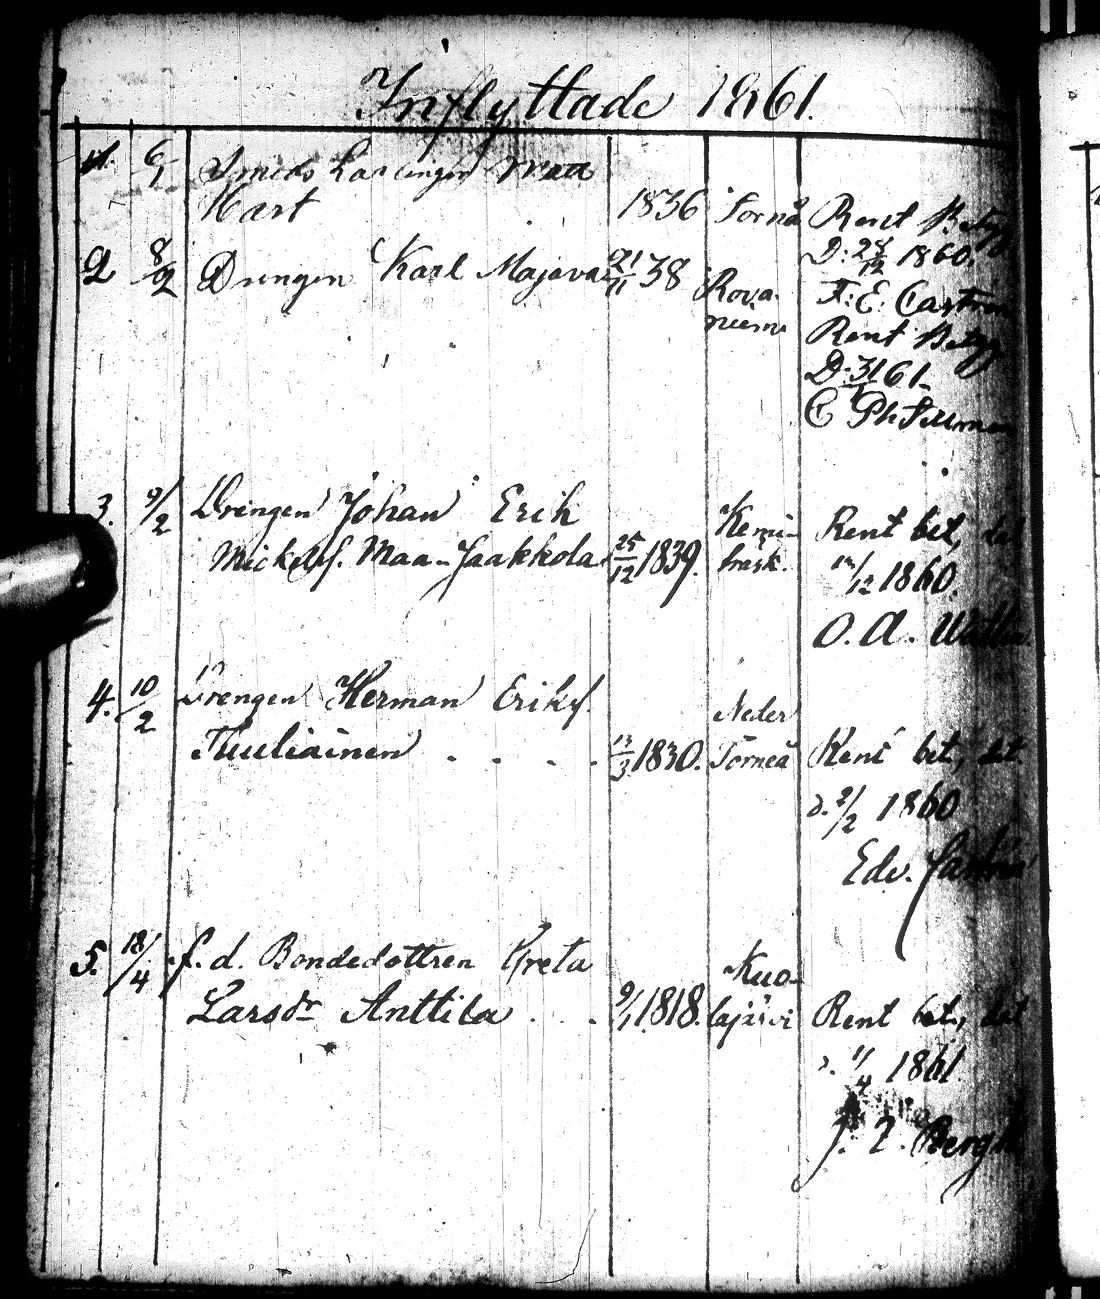 Inflyttade 1861.
1. 6/1 Smeds Lärlingen
Hart 1836 Torneå Rent Betyg
D: 28/12 1860.
2 8/2 Drengen Karl Majava 21/11 38 Rova-
niemi
F: E. Castrén
Rent Betyg
D. 3/1 61.
C Ph Sellman
3. 9/2 Drengen Johan Erik
Mickelss. Maa-Jaakkola 25/12 1839. Kemi-
träsk. Rent bet,
12/12 1860.
O. A. Wallin
4. 10/2 Drengen Herman Eriks.
Tuuliainen . . . . 13/3 1830. Neder
Torneå Rent bet, dat
d. 2/2 1860
Edv.
5. 18/4 f. d. Bondedottren Greta
Larsdr Anttila . . . 9/1 1818. Kuo-
lajärvi Rent bet, dat
11/4 1861